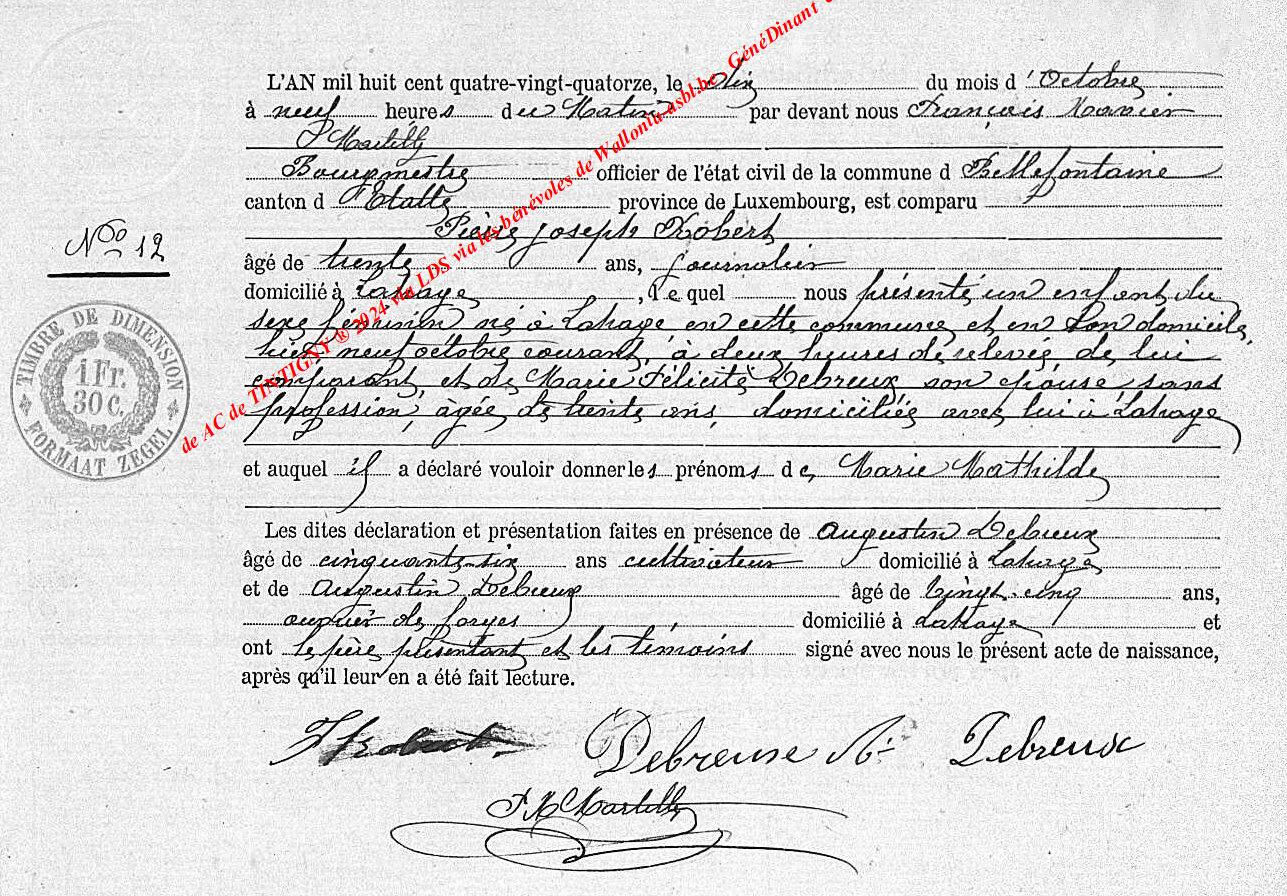 L'AN mil huit cent quatre-vingt-quatorze, le dix du mois d'Octobre
à neuf heures du Matin par devant nous François Xavier
Martilly
Bourgmestre officier de l'état civil de la commune d Bellefontaine
canton d'Etalle province de Luxembourg, est comparu
Pierre Joseph Robert
âgé de trente ans, journalier
domicilié à Lahage, lequel nous présente un enfant du
sexe féminin né à Lahage en cette commune et en son domicile,
hier neuf octobre courant, à deux heures de relevée, de lui
comparant et de Marie Félicité Debreux son épouse sans
profession, âgée de trente ans, domiciliée avec lui à Lahage
et auquel il a déclaré vouloir donner les prénoms de, Marie Mathilde
Les dites déclaration et présentation faites en présence de Augustin Debreux
âgé de cinquante-six ans cultivateur domicilié à Lahage
et de Augustin Debreux âgé de Vingt-cinq ans,
ouvrier de forges domicilié à Lahage et
ont le père présentant et les témoins signé avec nous le présent acte de naissance,
après qu'il leur en a été fait lecture.
Debreuse Debreux
F X Martilly
No 12
TIMBRE DE DIMENSION
1 Fr.
30 C.
FORMAAT ZEGEL
de AC de TINTIGNY ® 2024 via LDS via les bénévoles de Wallonia-asbl.be - GénéDinant